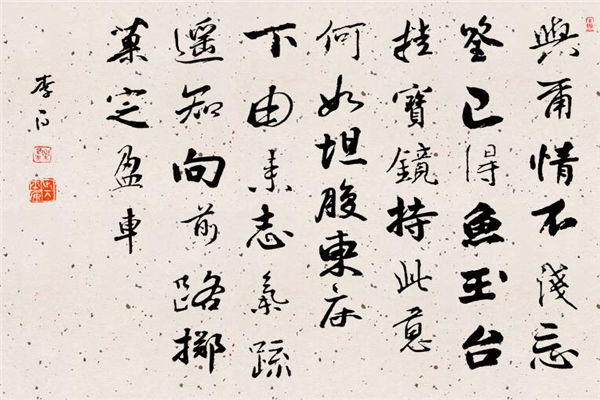 與爾情不淺忘
筌已得魚玉台
挂寶鏡持此意
何如坦腹東床
下由来志氣疏
遥知向前路擲
菓定盈車
李白